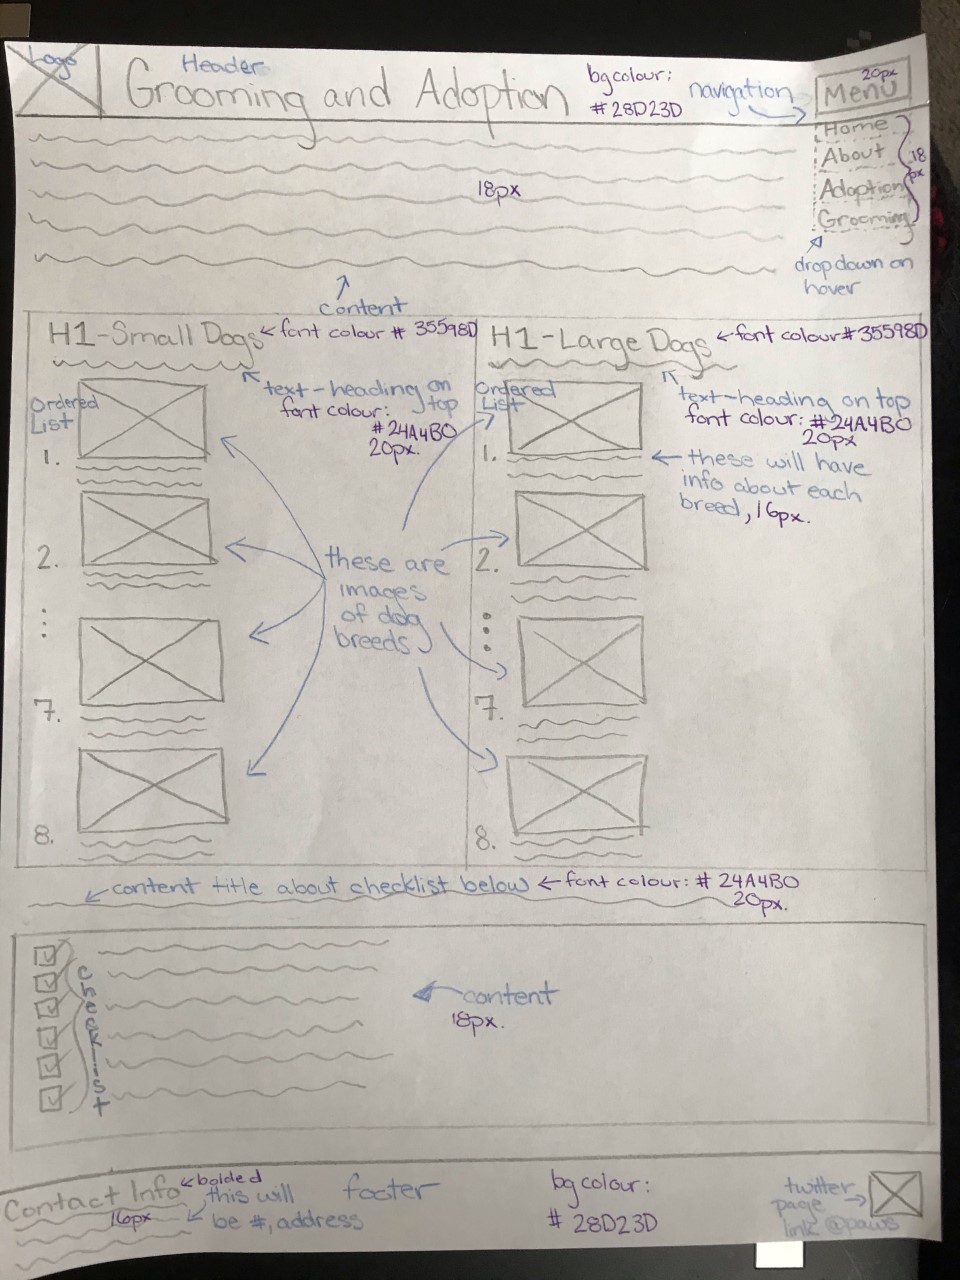 Logo
Header
Grooming and Adoption
bg colour:
# 28D23D
navigation
20px
Menu
Home
About
Adoption
Grooming
18
px
drop down on
hover
18px
content
H1-Small Dogs
font colour # 35598D
text-heading on
top
font colour:
#24A4B0
20px.
Ordered
List
1.
2.
7.
8.
H1-Large Dogs
font colour # 35598D
text-heading on top
font colour: #24A4B0
20px
Ordered
List
1.
these will have
info about each
breed, 16px.
2.
7.
8.
these are
images
of dog
breeds
content title about checklist below
font colour: # 24A4B0
20px.
checklist
content
18px.
Contact Info
bolded
this will
be #, address
16px
footer
bg colour:
# 28D23D
twitter
page
link @paws